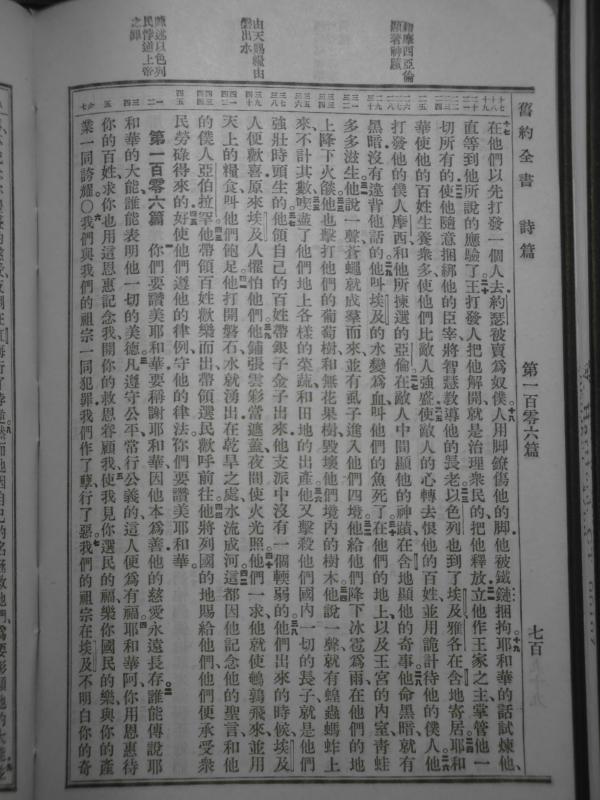 舊約全書 詩篇 第一百零六篇 七百
顯著神蹟
由天賜糧由
磐出水
民悖逆上帝
之罪
在他們以先打發一個人去約瑟被賣爲奴僕人用脚鐐傷他的脚他被鐵鏈捆拘耶和華的話試煉他
直等到他所說的應驗了王打發人把他解開就是治理衆民的把他釋放立他作王家之主掌管他一
切所有的使他隨意捆綁他的臣宰將智慧教導他的長老以色列也到了埃及雅各在含地寄居耶和
華使他的百姓生養衆多使他們比敵人強盛使敵人的心轉去恨他的百姓並用詭計待他的僕人他
打發他的僕人摩西和他所揀選的亞倫在敵人中間顯他的神蹟在含地顯他的奇事他命黑暗就有
黑暗沒有違背他話的他叫埃及的水變爲血叫他們的魚死了在他們的地上以及王宮的內室靑蛙
多多滋生他說一聲蒼蠅就成羣而來並有虱子進入他們四境他給他們降下冰雹爲雨在他們的地
上降下火燄他也擊打他們的葡萄樹和無花果樹毀壞他們境內的樹木他說一聲就有蝗蟲螞蚱上
來不計其數喫盡了他們地上各樣的菜蔬和田地的出產他又擊殺他們國內一切的長子就是他們
強壯時頭生的他領自己的百姓帶銀子金子出來他支派中沒有一個輭弱的他們出來的時候埃及
人便歡喜原來埃及人懼怕他們他鋪張雲彩當遮蓋夜間使火光照他們一求他就使鵪鶉飛來並用
天上的糧食叫他們飽足他打開磐石水就湧出在乾旱之處水流成河這都因他記念他的聖言和他
的僕人亞伯拉罕他帶領百姓歡樂而出帶領選民歡呼前往他將列國的地賜給他們他們便承受衆
民勞碌得來的好使他們遵他的律例守他的律法你們要讚美耶和華
第一百零六篇 你們要讚美耶和華要稱謝耶和華因他本爲善他的慈愛永遠長存誰能傳說耶
和華的大能誰能表明他一切的美德凡遵守公平常行公義的這人便爲有福耶和華阿你用恩惠待
你的百姓求你也用這恩惠記念我開你的救恩眷顧我使我見你選民的福樂你國民的樂與你的產
業一同誇耀○我們與我們的祖宗一同犯罪我們作了孽行了惡我們的祖宗在埃及不明白你的奇